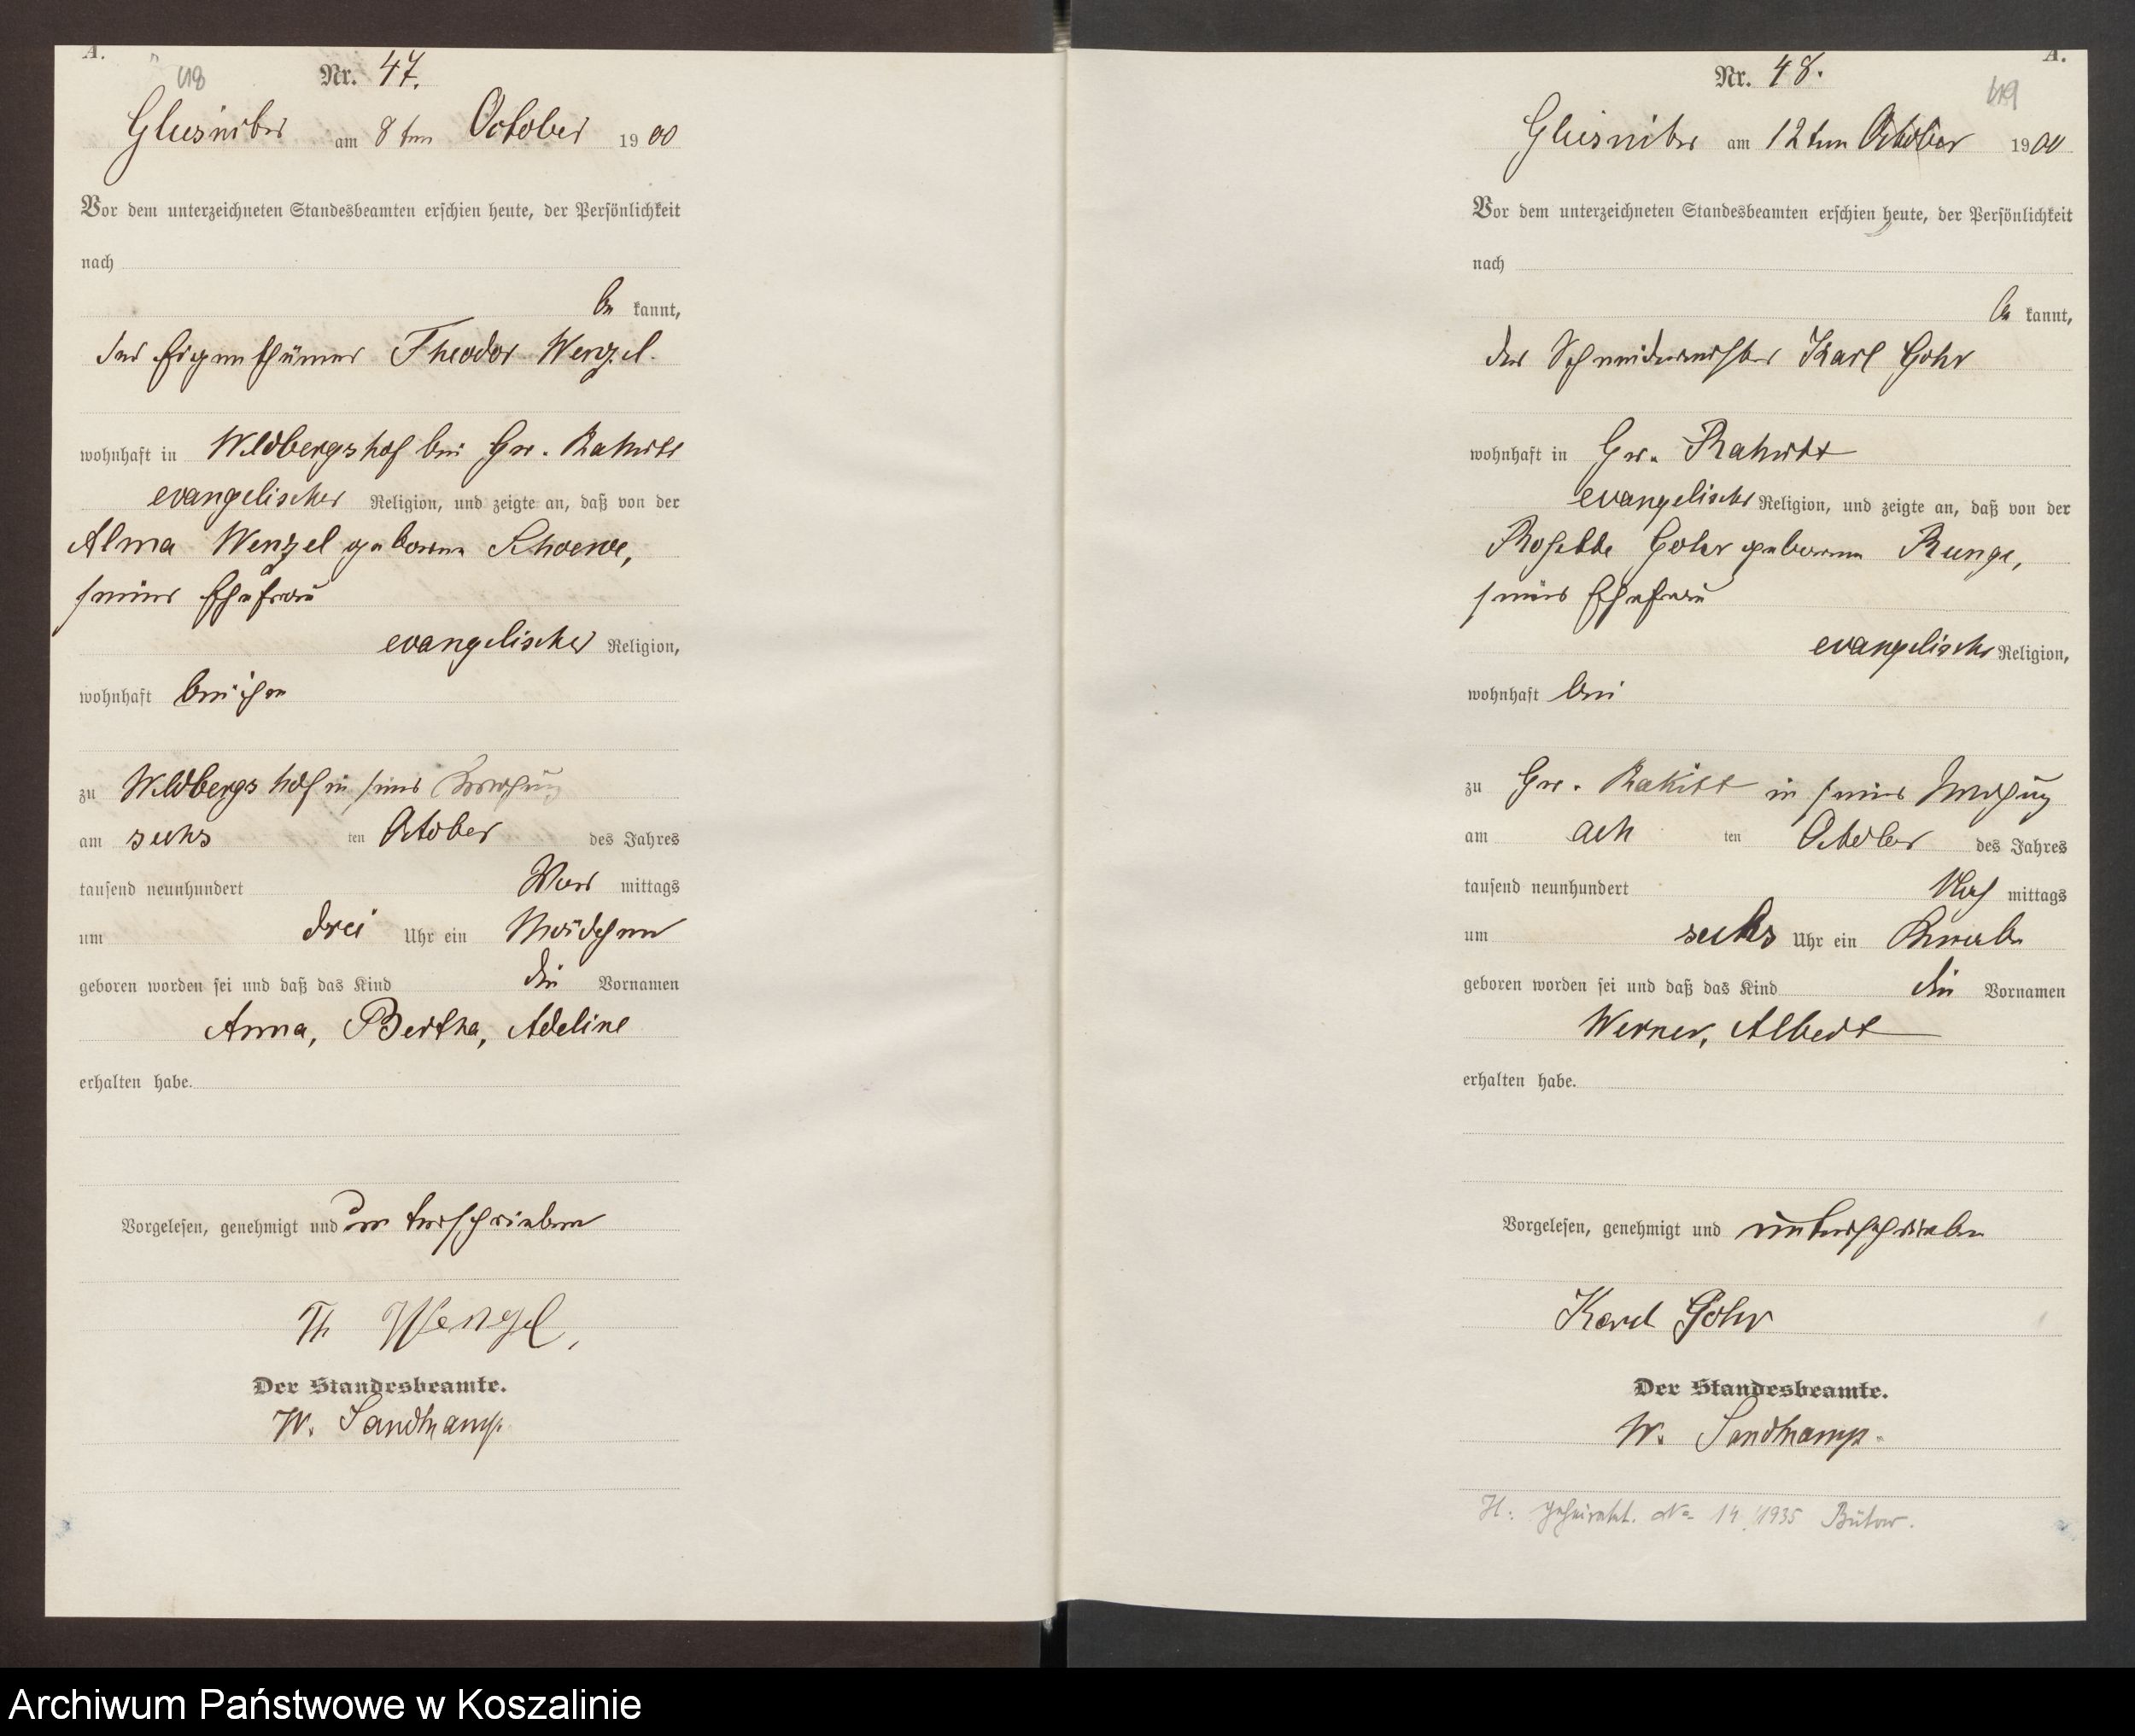 A.
48
Nr. 47.
Gliesnitz am 8ten October 1900
Vor dem unterzeichneten Standesbeamten erschien heute, der Persönlichkeit
nach
be kannt,
der Eigenthümer Theodor Wenzel.
wohnhaft in Wildbergshof bei Gr. Rakitt
evangelischer Religion, und zeigte an, daß von der
Alma Wenzel geborene Schoewe,
seiner Ehefrau
evangelischer Religion,
wohnhaft bei ihm
zu Wildbergshof in seiner Wohnung
am sechs ten October des Jahres
tausend neunhundert Vor mittags
um drei Uhr ein Mädchen
geboren worden sei und daß das Kind die Vornamen
Anna, Bertha, Adeline
erhalten habe.
Vorgelesen, genehmigt und unterschrieben
Th Wenzel,
Der Standesbeamte.
W. Sandkamp.
A.
49
Nr. 48.
Gliesnitz am 12ten October 1900
Vor dem unterzeichneten Standesbeamten erschien heute, der Persönlichkeit
nach
be kannt,
der Schneidermeister Karl Gohr
wohnhaft in Gr. Rakitt
evangelischer Religion, und zeigte an, daß von der
Rosette Gohr geborene Runge,
seiner Ehefrau
evangelischer Religion,
wohnhaft bei
zu Gr. Rakitt in seiner Wohnung
am ach ten October des Jahres
tausend neunhundert Nach mittags
um sechs Uhr ein Knabe
geboren worden sei und daß das Kind die Vornamen
Werner, Albert
erhalten habe.
Vorgelesen, genehmigt und unterschrieben
Karl Gohr
Der Standesbeamte.
W. Sandkamp.
H: geheiratet. No 14/1935 Bütow.
Archiwum Państwowe w Koszalinie